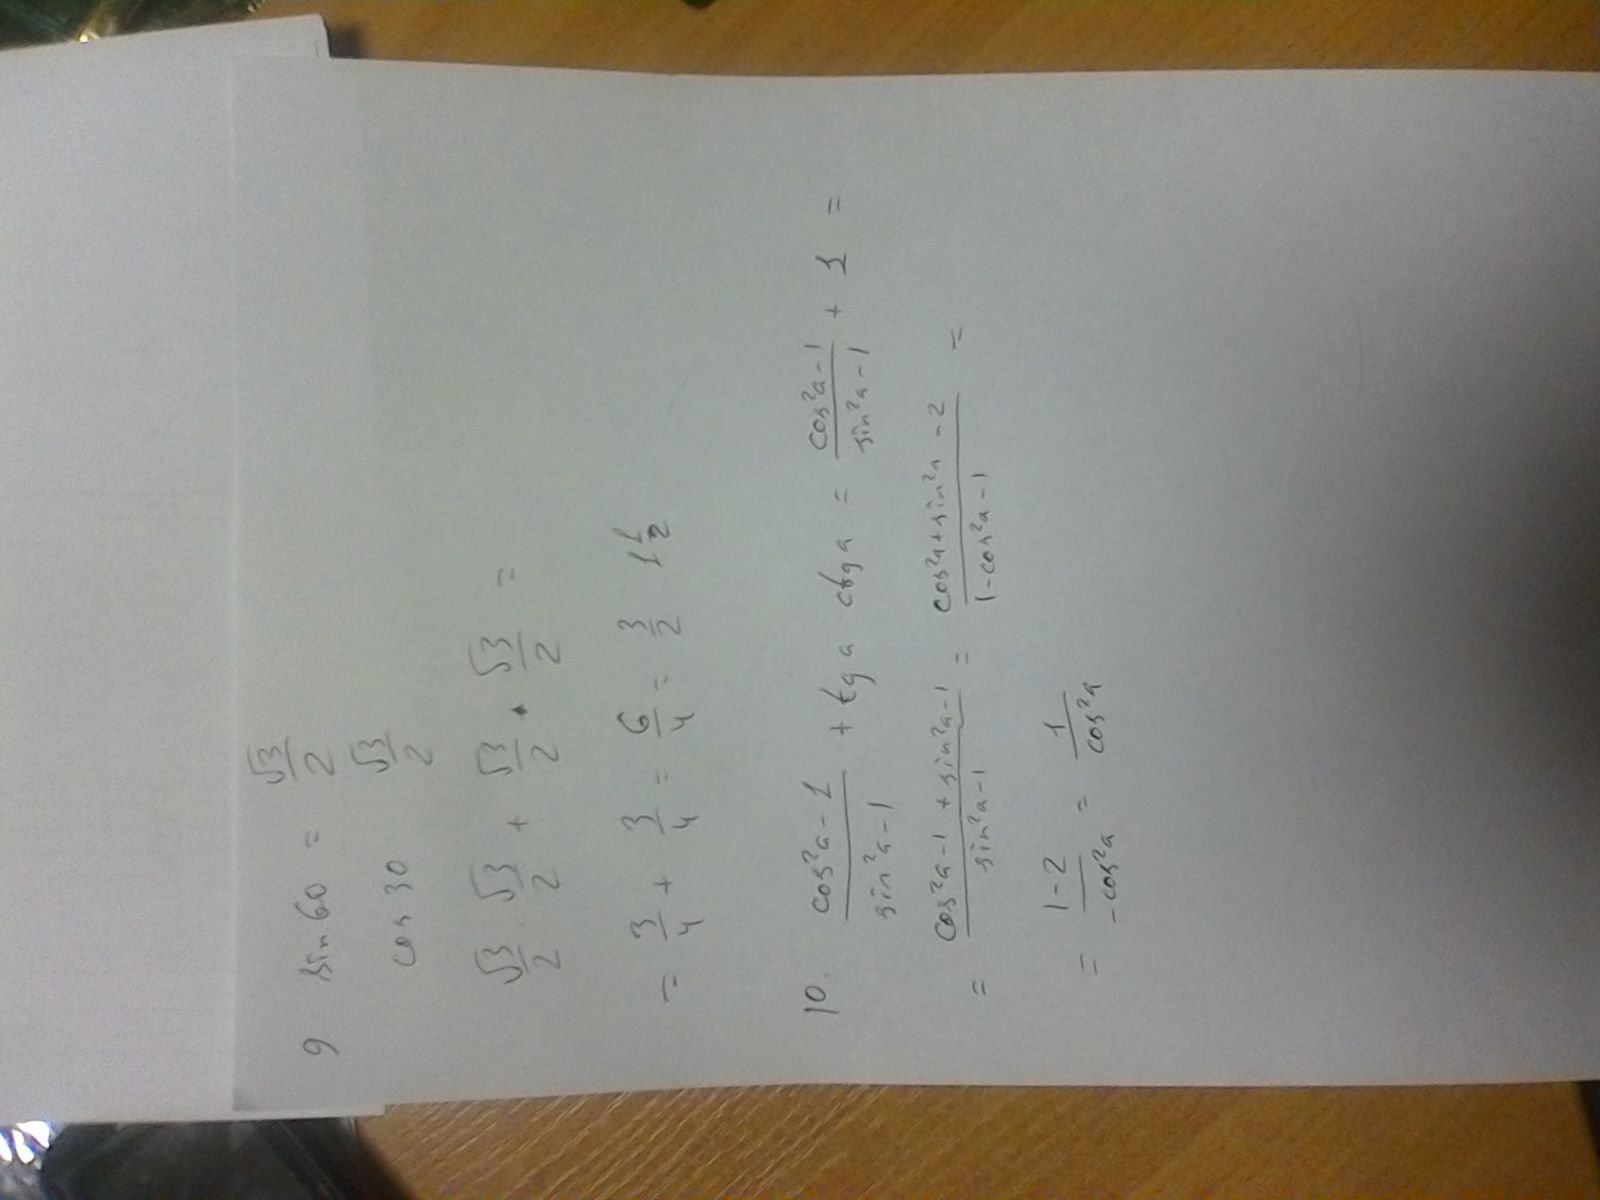 9 sin 60 = √3/2
cos 30 √3/2
√3/2 · √3/2 + √3/2 · √3/2 =
= 3/4 + 3/4 = 6/4 = 3/2 1 1/2
10. (cos²a - 1)/(sin²a - 1) + tg a · ctg a = (cos²a - 1)/(sin²a - 1) + 1 =
= (cos²a - 1 + sin²a - 1)/(sin²a - 1) = (cos²a + sin²a - 2)/(1 - cos²a - 1) =
= (1 - 2)/(-cos²a) = 1/(cos²a)